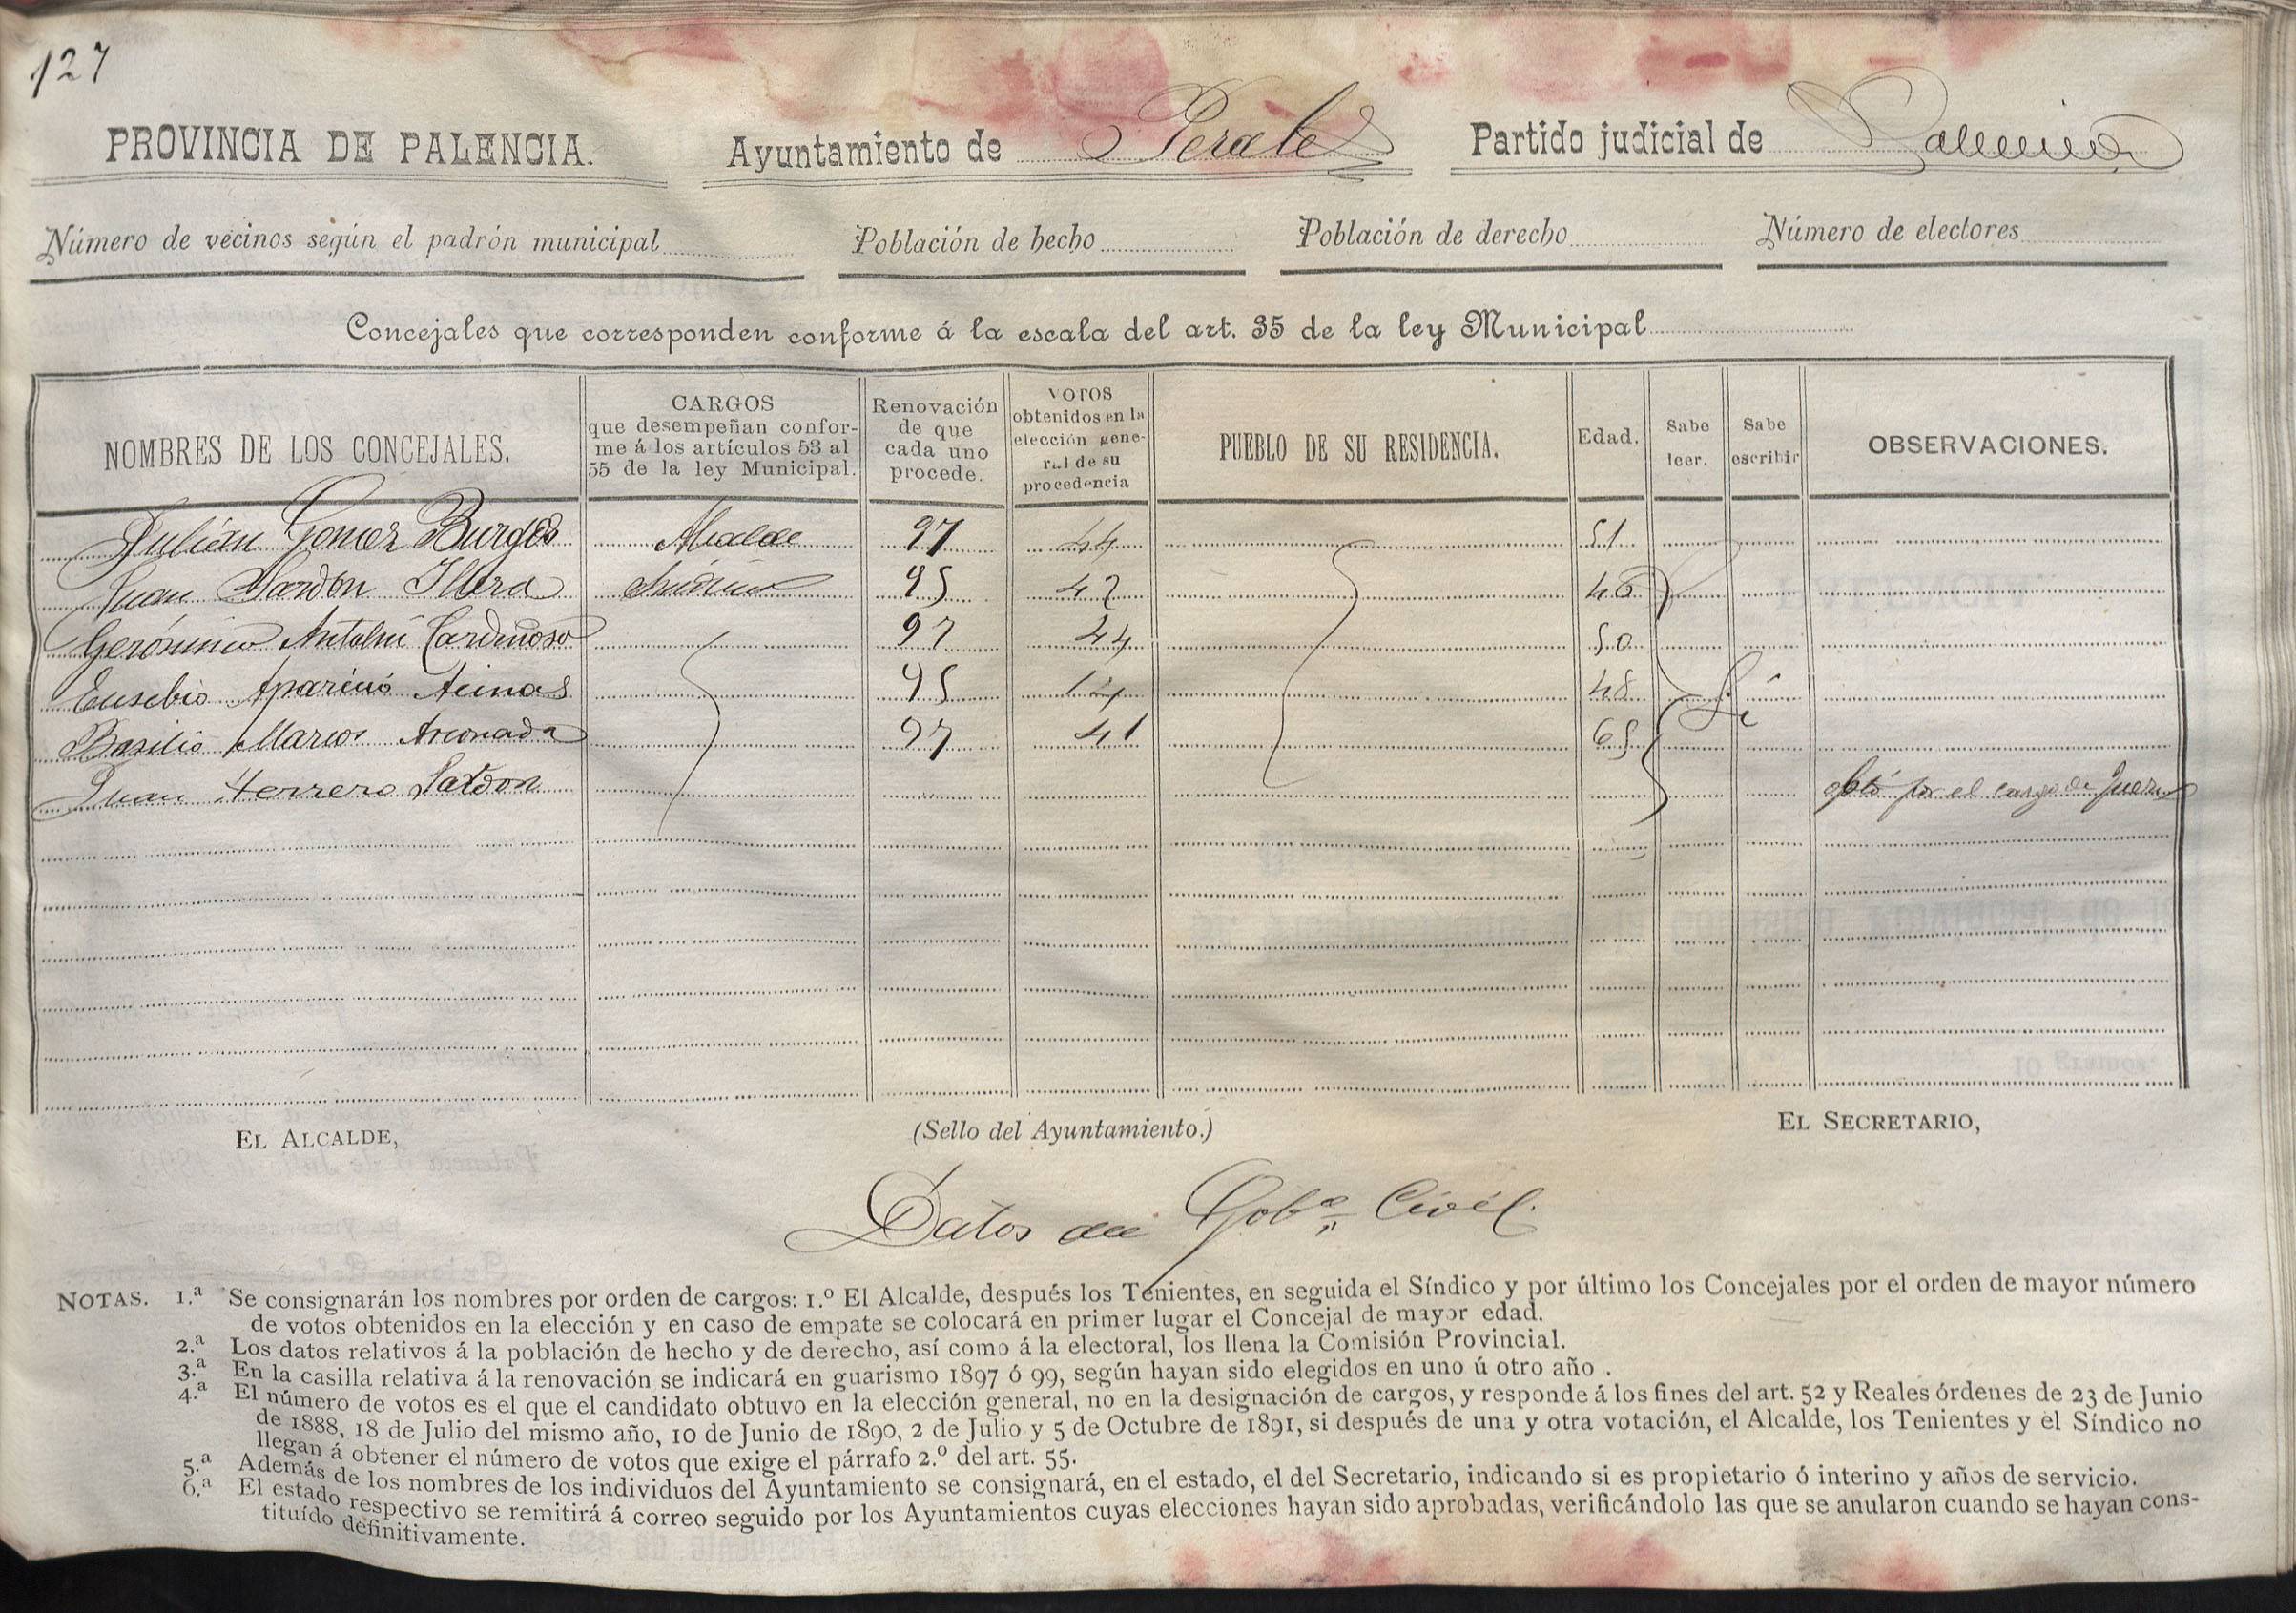 127
PROVINCIA DE PALENCIA. Ayuntamiento de Perales Partido judicial de Palencia
Número de vecinos según el padrón municipal Población de hecho Población de derecho Número de electores
Concejales que corresponden conforme á la escala del art. 35 de la ley Municipal
NOMBRES DE LOS CONCEJALES. CARGOS que desempeñan confor-me á los artículos 53 al 55 de la ley Municipal. Renovación de que cada uno procede. VOTOS obtenidos en la elección gene-ral de su procedencia PUEBLO DE SU RESIDENCIA. Edad. Sabe leer. Sabe escribir OBSERVACIONES.
Julián Gomez Burgos Alcalde 97 44 51
Juan Sardon Illera Síndico 95 42 46
Gerónimo Antolin Cardeñoso 97 44 50
Eusebio Aparicio Acinas 95 14 48 Si
Basilio Marcos Arconada 97 41 65
Juan Herrero Sardon optó por el cargo de Juez
EL ALCALDE, (Sello del Ayuntamiento.) EL SECRETARIO,
Datos del Gobº Civil.
NOTAS. 1.ª Se consignarán los nombres por orden de cargos: 1.º El Alcalde, después los Tenientes, en seguida el Síndico y por último los Concejales por el orden de mayor número
de votos obtenidos en la elección y en caso de empate se colocará en primer lugar el Concejal de mayor edad.
2.ª Los datos relativos á la población de hecho y de derecho, así como á la electoral, los llena la Comisión Provincial.
3.ª En la casilla relativa á la renovación se indicará en guarismo 1897 ó 99, según hayan sido elegidos en uno ú otro año .
4.ª El número de votos es el que el candidato obtuvo en la elección general, no en la designación de cargos, y responde á los fines del art. 52 y Reales órdenes de 23 de Junio
de 1888, 18 de Julio del mismo año, 10 de Junio de 1890, 2 de Julio y 5 de Octubre de 1891, si después de una y otra votación, el Alcalde, los Tenientes y el Síndico no
llegan á obtener el número de votos que exige el párrafo 2.º del art. 55.
5.ª Además de los nombres de los individuos del Ayuntamiento se consignará, en el estado, el del Secretario, indicando si es propietario ó interino y años de servicio.
6.ª El estado respectivo se remitirá á correo seguido por los Ayuntamientos cuyas elecciones hayan sido aprobadas, verificándolo las que se anularon cuando se hayan cons-
tituído definitivamente.